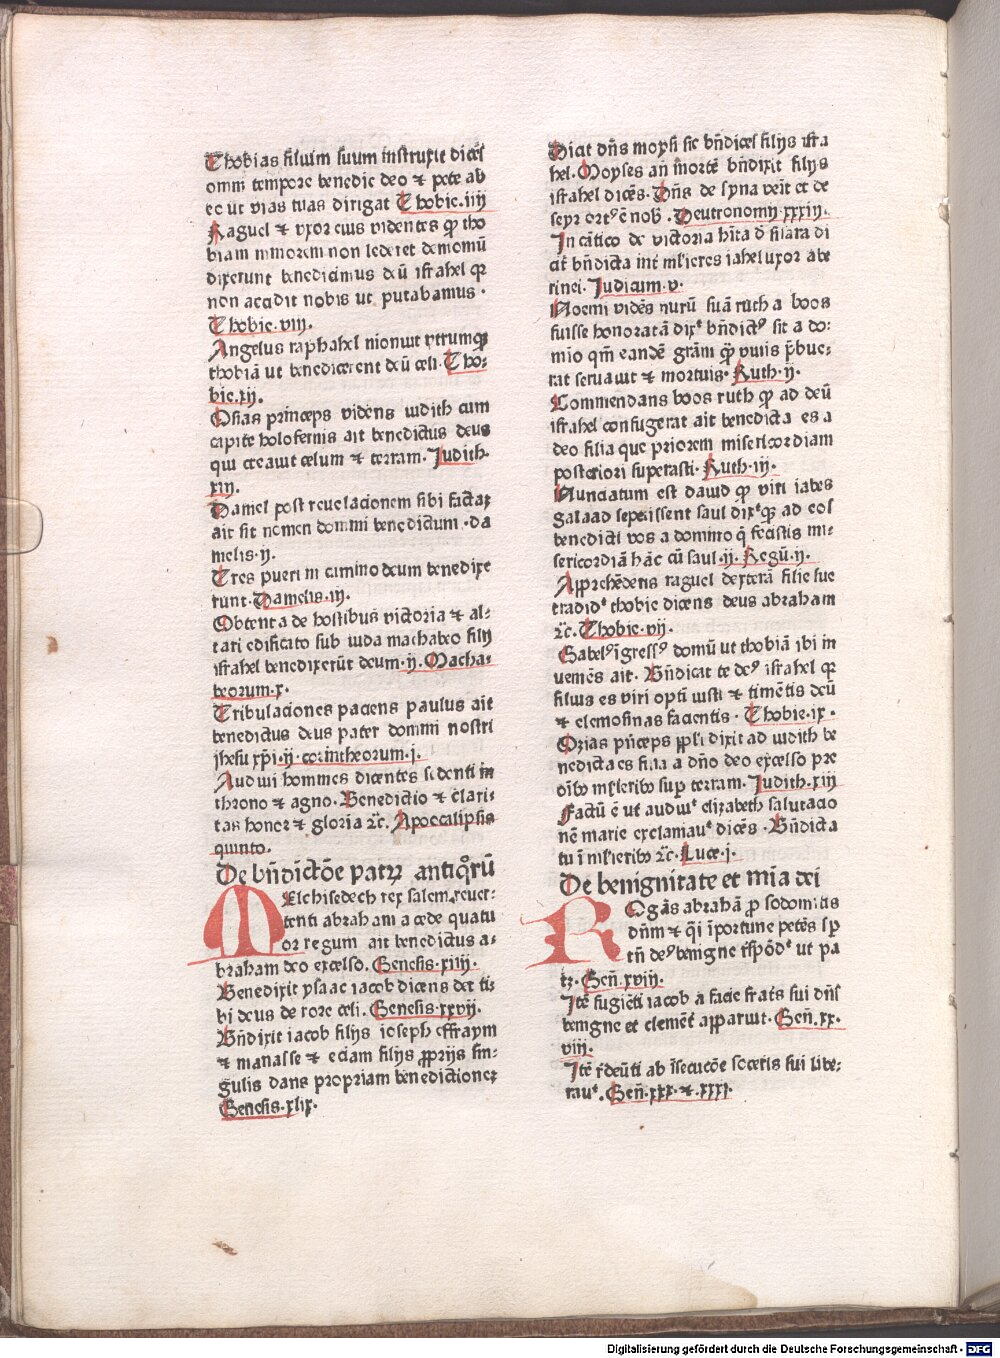 Thobias filium suum instruxit dicēs
omni tempore benedic deo ⁊ pete ab
eo ut vias tuas dirigat Thobie.iiij
Raguel ⁊ vxor eius videntes ꝙ tho
biam in morem non lederet demoniū
dixerunt benedicimus deū israhel qꝛ
non accidit nobis ut putabamus ·
Thobie.viii.
Angelus raphahel monuit vtrumqꝫ
thobiā ut benedicerent deū celi. Tho-
bie.xij.
Osias princeps videns iudith cum
capite holofernis ait benedictus deus
qui creauit celum ⁊ terram. Judith.
xiij.
Daniel post reuelacionem sibi factaꝫ
ait sit nomen domini benedictum . da
nielis.ij.
Tres pueri in camino deum benedixe
runt. Danielis.iij.
Obtenta de hostibus victoria ⁊ al-
tari edificato sub iuda machabeo filij
israhel benedixerūt deum.ij. Macha-
beorum.x.
Tribulaciones paciens paulus ait
benedictus deus pater domini nostri
ihesu xp̄i.ij. corintheorum.j.
Audiui homines dicentes sedenti in
throno ⁊ agno. Benedictio ⁊ clari-
tas honor ⁊ gloria ꝛc̄. Apocalipsis
quinto.
De bn̄dictōe patꝝ antiqͦrū
MElchisedech rex salem reuer-
tenti abraham a cede quatu
or regum ait benedictus a-
braham deo excelso. Genesis.xiiij.
Benedixit ysaac iacob dicens det ti-
bi deus de rore celi. Genesis.xxvij.
Bn̄dixit iacob filijs ioseph effraym
⁊ manasse ⁊ eciam filijs ꝓprijs sin-
gulis dans propriam benedictionez
Genesis.xlix.
Dicit dn̄s moysi sic bn̄dices filijs isra
hel. Moyses an̄ mortē bn̄dixit filijs
israhel dicēs. Dn̄s de syna venit et de
seyr ortꝰ ē nob̄. Deutronomij.xxxiij.
In cātico de victoria hīta d̄ sisara di
cit̄ bn̄dicta int̄ mlieres iahel uxor abe
rinei. Judicum.v.
Noemi vidēs nurū suā ruth a boos
fuisse honoratā dixͭ bn̄dictꝰ sit a do-
mīo qm̄ eandē grām qͣ̄ viuis p̄bue-
rat seruauit ⁊ mortuis. Ruth.ij.
Commendans boos ruth ꝙ ad deū
israhel confugerat ait benedicta es a
deo filia que priorem misericordiam
posteriori superasti. Ruth.iij.
Nunciatum est dauid ꝙ viri iabes
galaad sepelissent saul dixͭqꝫ ad eos
benedicti vos a domino qͥ fecistis mi-
sericordiā hāc cū saul.ij. Regū.ij.
Apprehēdens raguel dexterā filie sue
tradidͭ thobie dicens deus abraham
ꝛc̄. Thobie.vij.
Gabelꝰ īgressꝰ domū ut thobiā ibi in
uenies ait. Bn̄dicat te deꝰ israhel qꝛ
filius es viri optī iusti ⁊ timētis deū
⁊ elemosinas facientis. Thobie.ix.
Ozias pͥnceps ppl̄i dixit ad iudith be
nedicta es filia a dn̄o deo excelso pre
oībꝰ mlieribꝰ suꝑ terram. Judith.xiij
Factū ē ut audiuͭ elizabeth salutacio
nē marie exclamauͭ dicēs. Bn̄dicta
tu ī mlieribꝰ ꝛc̄. Luce.j.
De benignitate et mīa dei
ROgās abrahā ꝓ sodomitis
dn̄m ⁊ qͣi īportune petēs sꝑ
tn̄ deꝰ benigne rn̄spōdͭ ut pa
tꝫ. Gen̄.xviij.
Itē fugiēti iacob a facie frat͛s sui dn̄s
benigne et clemēt͛ apparuit. Gen̄.xx.
viij.
Itē r̄deūti ab īsecucōe soceris sui libe-
rauͭ. Gen̄.xxx.⁊.xxxj.
Digitalisierung gefördert durch die Deutsche Forschungsgemeinschaft - DFG